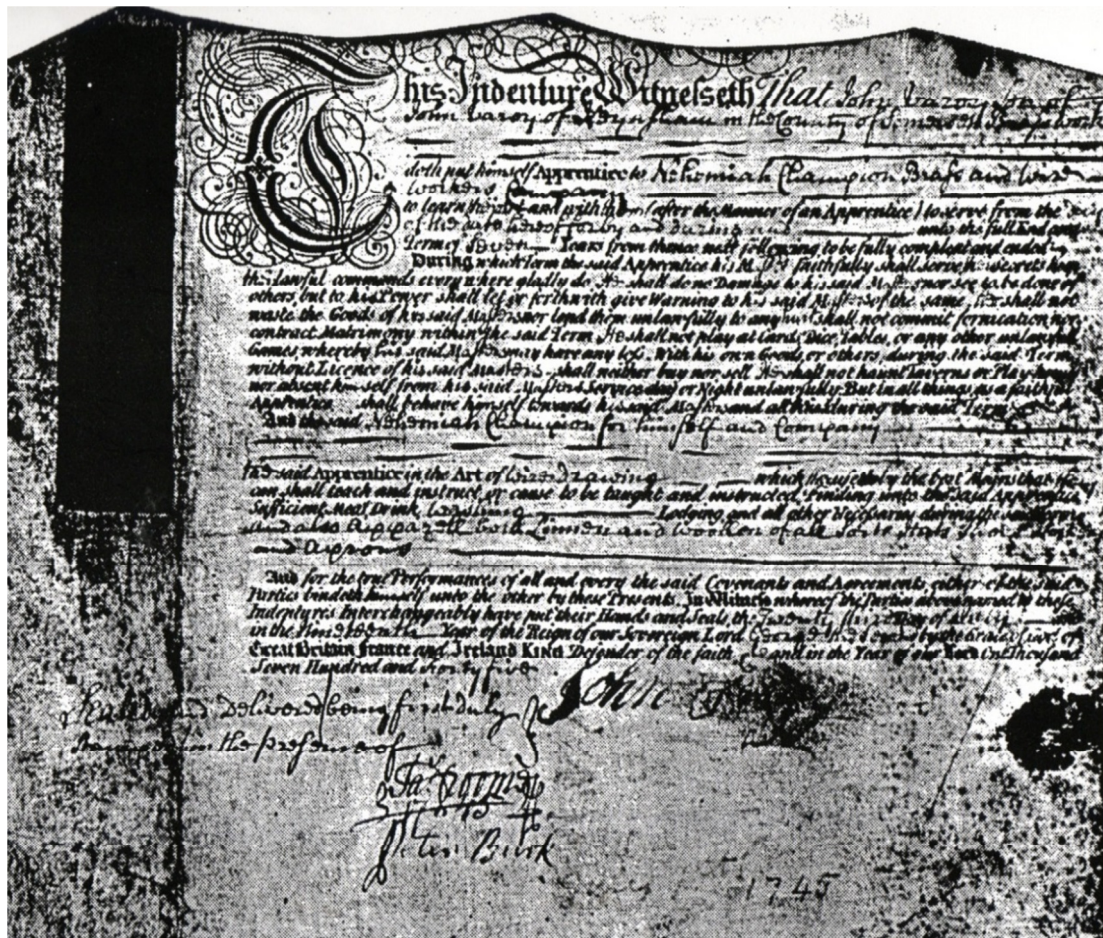 This Indenture Witnesseth That John Varoy Son of
John Varoy of in the County of Somerset
doth put himself Apprentice to Nehemiah Champion Brass and Wire
Workers Company
to learn their Art and with them (after the Manner of an Apprentice) to serve from the Day
of the date hereof for by and during and unto the full End and
Term of Seven Years from thence next following to be fully compleat and ended
During which Term the said Apprentice his Masters faithfully shall serve his secrets keep
their lawful commands every where gladly do He shall do no Damage to his said Masters nor see to be done of
others, but to his Power shall let or forthwith give Warning to his said Masters of the same, He shall not
waste the Goods of his said Masters nor lend them unlawfully to any, shall not commit fornication nor
contract Matrimony within the said Term He shall not play at Cards, Dice, Tables, or any other unlawful
Games whereby his said Masters may have any loss. With his own Goods, or others, during the said Term,
without Licence of his said Masters shall neither buy nor sell He shall not haunt Taverns or Playhouses
nor absent himself from his said Masters Service day or Night unlawfully. But in all things as a faithful
Apprentice shall behave himself towards his said Masters and all theirs during the said Term
And the said Nehemiah Champion for himself and Company
the said Apprentice in the Art of Wire Drawing which useth by the best Means that
can, shall teach and instruct, or cause to be taught and instructed, Finding unto the said Apprentice
Sufficient Meat Drink Washing Lodging, and all other Necessarys, during the said Term
and also Apparell both Linnen and Woollen of all Sorts
and Aprons
And for the true Performances of all and every the said Covenants and Agreements either of the said
Parties bindeth himself unto the other by these Presents. In Witness whereof the Parties above named to these
Indentures Interchangeably have put their Hands and Seals, the Twenty Day of
in the Nineteenth Year of the Reign of our Sovereign Lord George the Second by the Grace of God of
Great Britain France and Ireland King Defender of the faith &c and in the Year of our Lord One Thousand
Seven Hundred and forty five
John
Sealed and Delivered being first duly
in the presence of
Peter Burk
1745